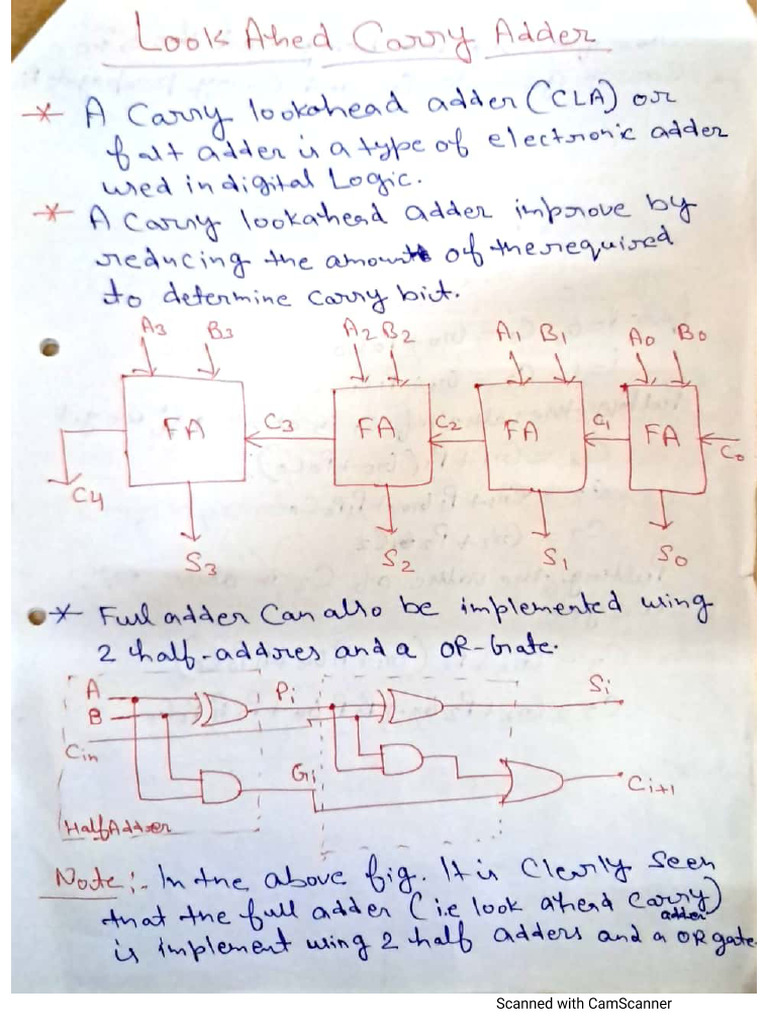 Look Ahed Carry Adder
* A Carry lookahead adder (CLA) or
fast adder is a type of electronic adder
used in digital Logic.
* A Carry lookahead adder improve by
reducing the amount of the required
to determine carry bict.
A3 B3 A2 B2 A1 B1 A0 B0
FA C3 FA C2 FA C1 FA C0
C4
S3 S2 S1 S0
* Full adder Can also be implemented using
2 half-addres and a OR-Gate.
A Pi Si
B
Cin
Gi Ci+1
Half Adder
Note :- In the above fig. It is Clearly Seen
that the full adder (i.e look ahead carry)
adder
is implement using 2 half adders and a OR gate.
Scanned with CamScanner